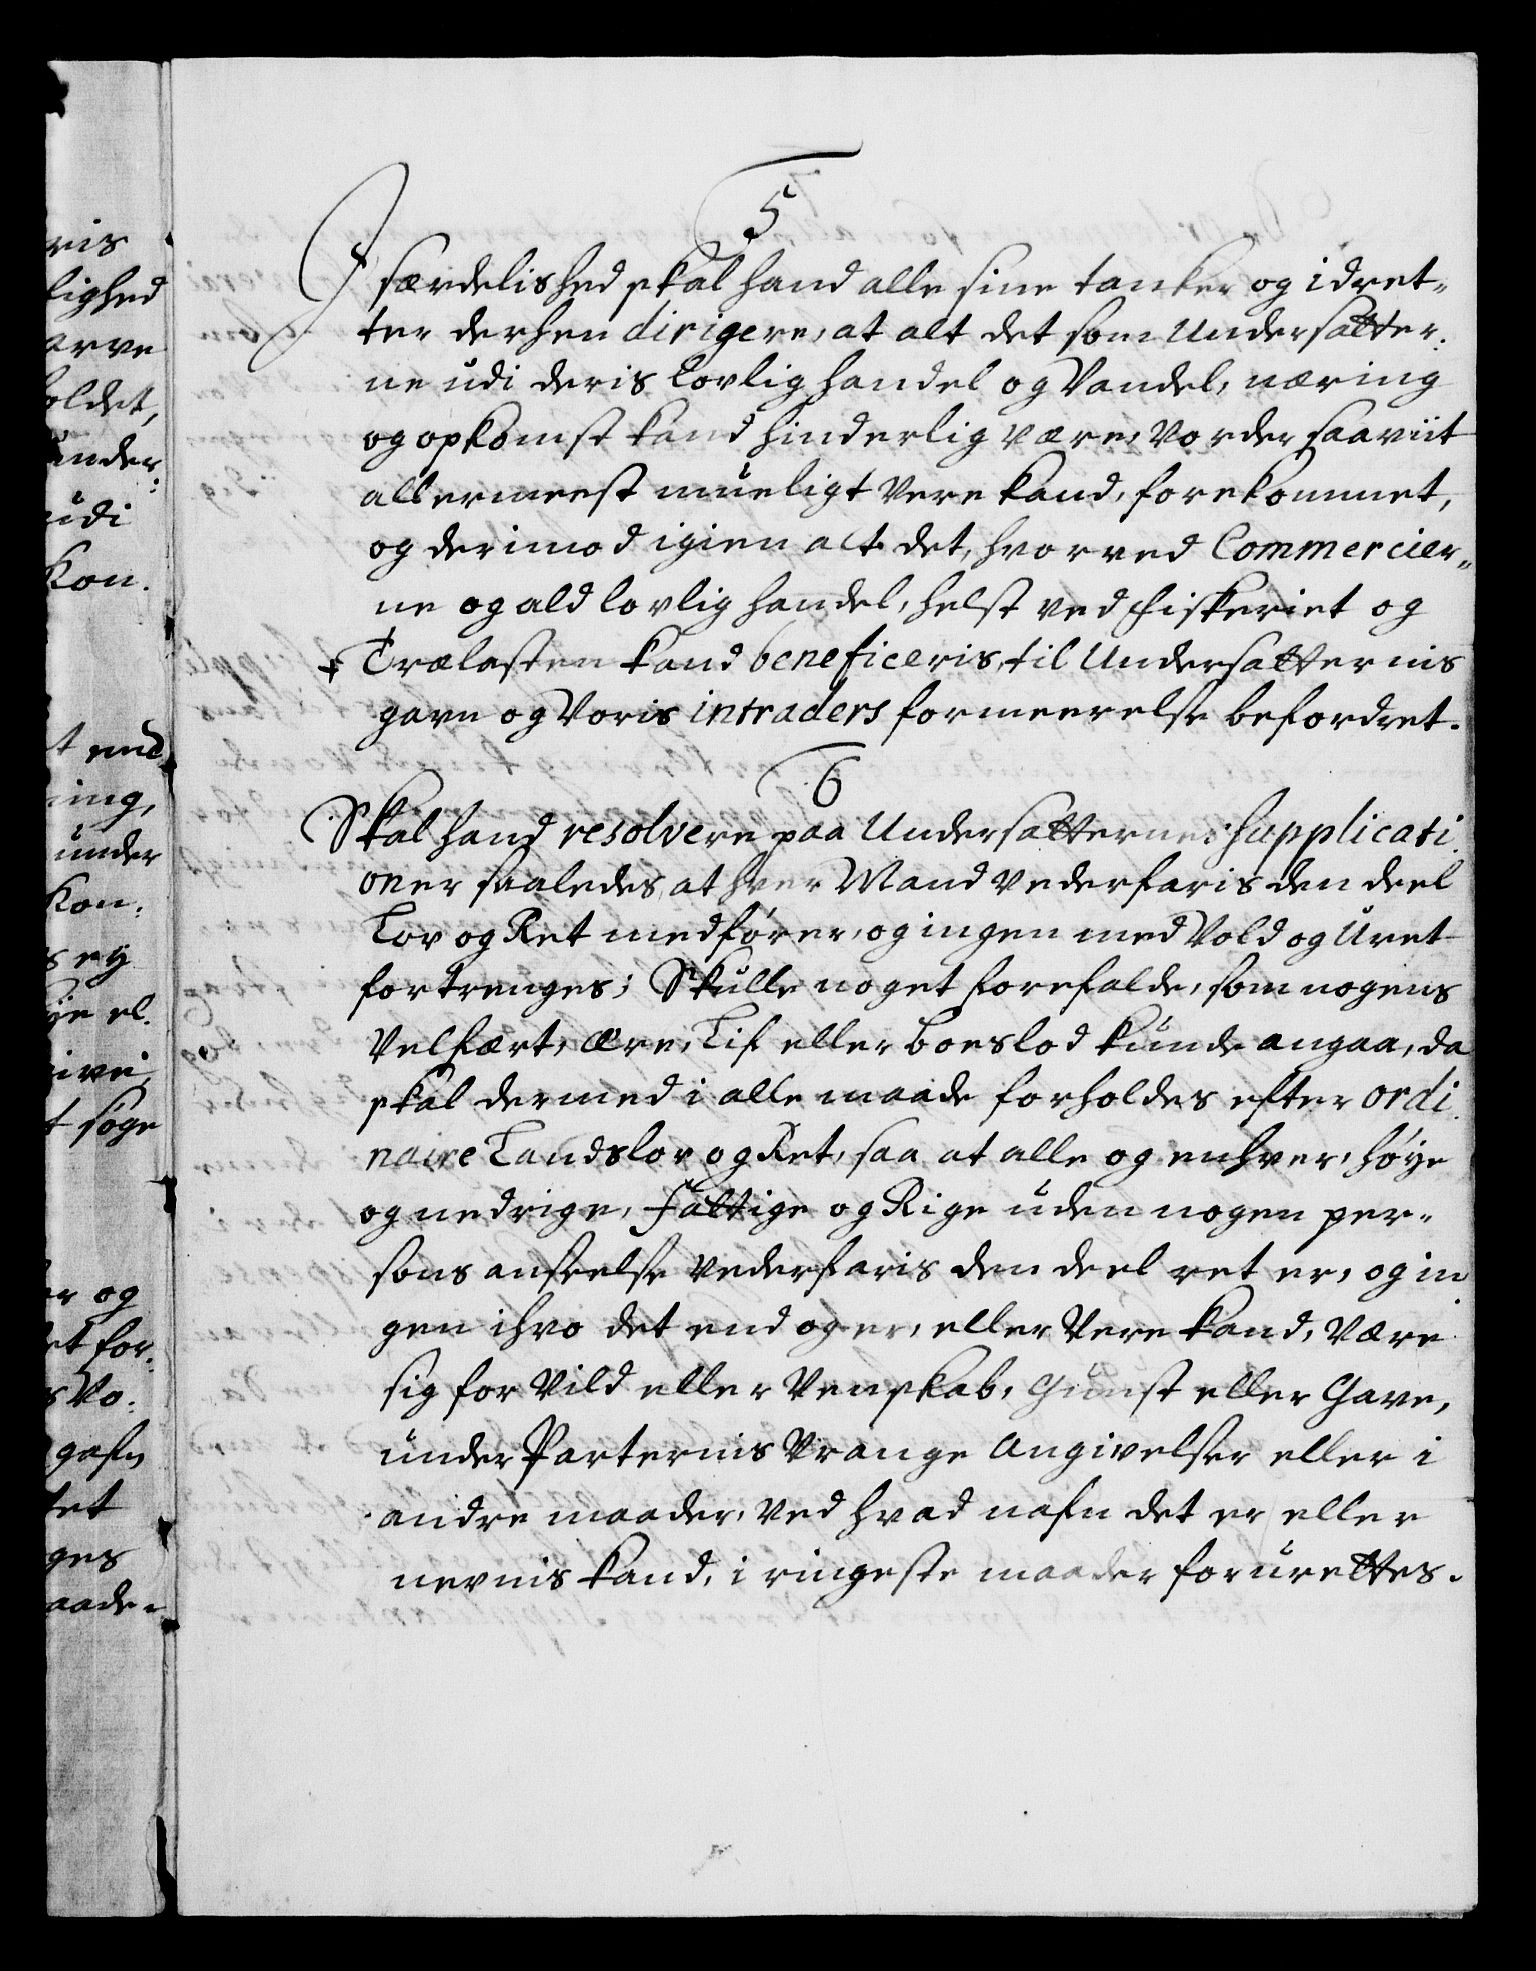 vis
lighed
arve
oldet,
under:
udi
Kon.
t end
ning,
under
Kon:
s ey
ÿe el.
give,
t søge
er og
et for:
s Vo:
gafn
tet
ges
aade.
5
I særdelished skal hand alle sine tanker og idret„
ter derhen dirigere, at alt det som Undersatter:
ne udi deris lovlig handel og Vandel, næring
og opkomst kand hinderlig være, Vorder saaviit
allermeest mueligt Vere kand, forekommet,
og derimod igien alt det, hvorved Commercier„
ne og ald lovlig handel, helst ved fiskeriet og
Trælasten kand beneficeris, til Undersatternis
gavn og Voris intraders formeerelse befordret.
6
Skal hand resolvere paa Undersatternes supplicati:
oner saaledes, at hver Mand Vederfaris den deel
Lov og Ret medfører, og ingen med Vold og Uret
fortrenges; Skulle noget forefalde, som nogens
Velfært, ære, Lif eller boeslod kunde angaa, da
skal dermed i alle maade forholdes efter ordi:
naire Landslov og Ret, saa at alle og enhver, høÿe
og nedrige, fattige og Rige uden nogen per„
sons anseelse Vederfaris den deel ret er, og in:
gen ihvo det end og er, eller Vere kand, Være
sig for Vild eller Venskab, Gunst eller Gave,
under Parternis Vrange Angivelser eller i
andre maader, Ved hvad nafn det er eller
nevnis kand, i ringeste maader forurettes.